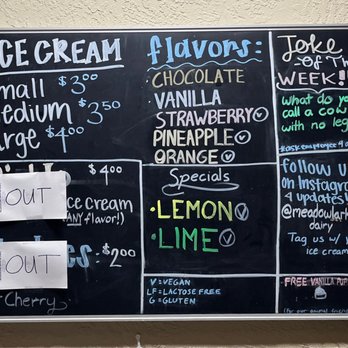 ICE CREAM
Small $3.00
Medium $3.50
Large $4.00
$4.00
OUT
ice cream
(ANY flavor!)
$2.00
OUT
Cherry
flavors:
CHOCOLATE
VANILLA
STRAWBERRY V
PINEAPPLE V
ORANGE V
Specials
• LEMON V
• LIME V
V = VEGAN
LF = LACTOSE FREE
G = GLUTEN
Joke
Of Th
WEEK!!
What do yo
call a cow
with no leg
follow u
on Instagra
4 updates!
@meadowlark
dairy
Tag us w/ y
ice cream
FREE VANILLA PUP
(for our animal friend